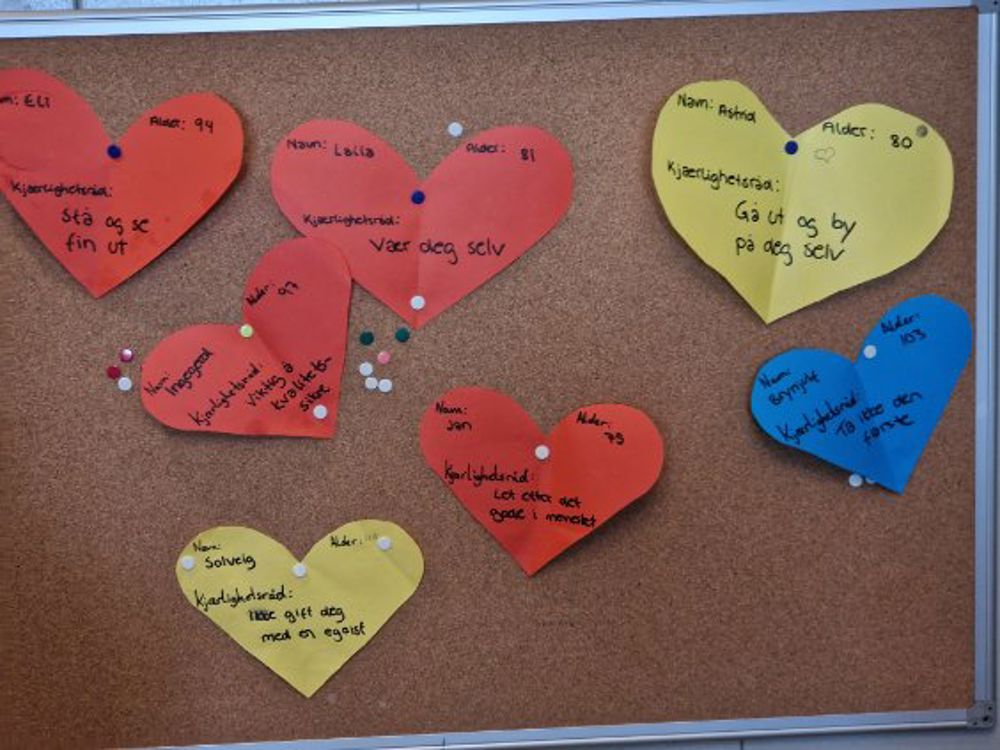 Navn: Eli
Alder: 94
Kjærlighetsråd:
Stå og se
fin ut
Navn: Laila
Alder: 81
Kjærlighetsråd:
Vær deg selv
Navn: Astrid
Alder: 80
Kjærlighetsråd:
Gå ut og by
på deg selv
Navn: Ingegerd
Alder: 97
Kjærlighetsråd:
Viktig å
kvalitets-
sikre
Navn:
Jan
Alder:
79
Kjærlighetsråd:
Let etter det
gode i
Navn:
Brynjulf
Alder:
103
Kjærlighetsråd:
Ta ikke den
første
Navn:
Solveig
Alder:
Kjærlighetsråd:
Ikke gift deg
med en egoist